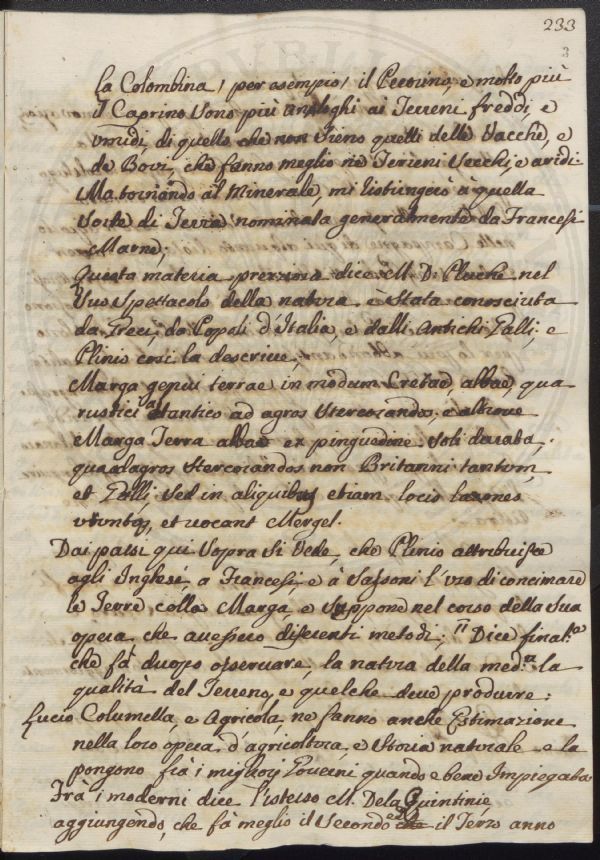 233
3
la Colombina / per esempio / il Pecorino, e molto più
il Caprino sono più analoghi ai Terreni freddi, e
umidi, di quello che non sieno quelli delle Vacche, e
de Bovi, che fanno meglio ne Terreni secchi, e aridi.
Ma tornando al Minerale, mi ristringerò à quella
sorte di Terra nominata generalmente da Francesi
Marne;
Questa materia preziosa dice M. D. Pluche nel
suo Spettacolo della natura è stata conosciuta
da Greci, da Popoli d'Italia, e dalli Antichi Galli; e
Plinio così la descrive;
Marga genus terrae in modum Cretae, albae, qua
rustici utantur ad agros stercorandos; e altrove
Marga Terra albae ex pinguedine soli
quae ad agros stercorandos non Britanni tantum,
et Galli, sed in aliquibus etiam locis Saxones
utuntur, et vocant Mergel.
Dai passi qui sopra si vede, che Plinio attribuisce
agli Inglesi, a Francesi, e à Sassoni l'uso di concimare
le Terre colla Marga, e suppone nel corso della sua
opera che avessero diferenti metodi; Dice final.e
che fà duopo osservare, la natura della med.a la
qualità del Terreno, e quel che deve produrre:
Lucio Columella, e Agricola, ne fanno anche Estimazione
nella loro opera d'agricoltura, e storia naturale e la
pongono frà i migliori Concimi quando e bene Impiegata
Trà i moderni dice l'istesso M. Dela Quintinie
aggiungendo, che fà meglio il Secondo, ed il Terzo anno